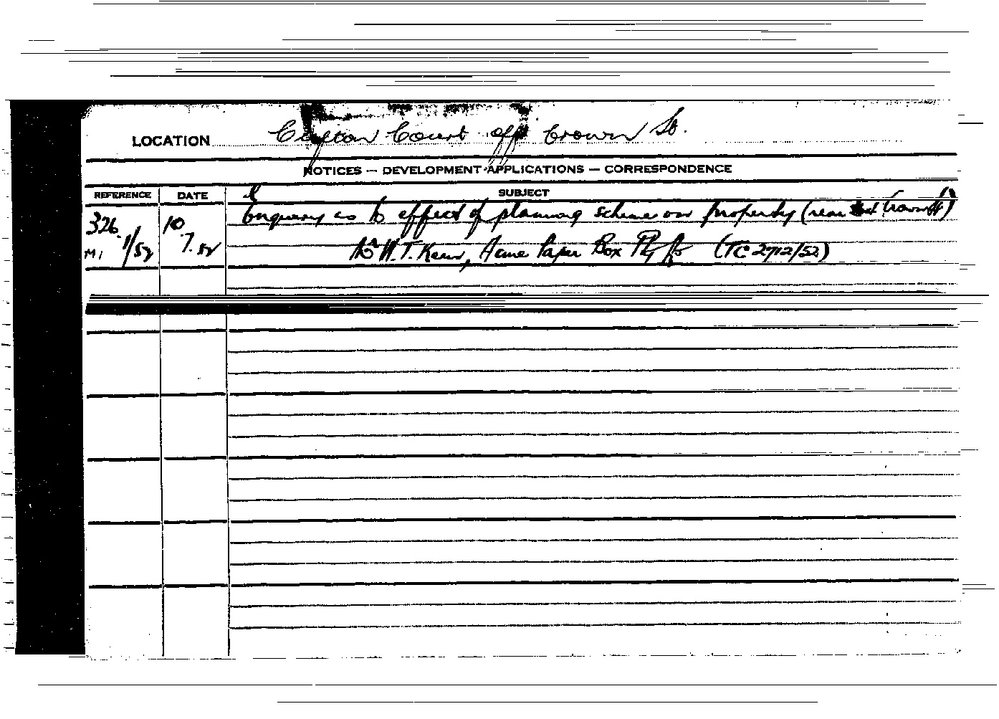 LOCATION Clifton Court off Crown St.
NOTICES — DEVELOPMENT APPLICATIONS — CORRESPONDENCE
REFERENCE DATE SUBJECT
326. 1/52 10. 7. 52 Enquiry as to effect of planning scheme on property (rear
M1 W. T. Kerr, Acme Paper Box Pty (TC 2712/52)